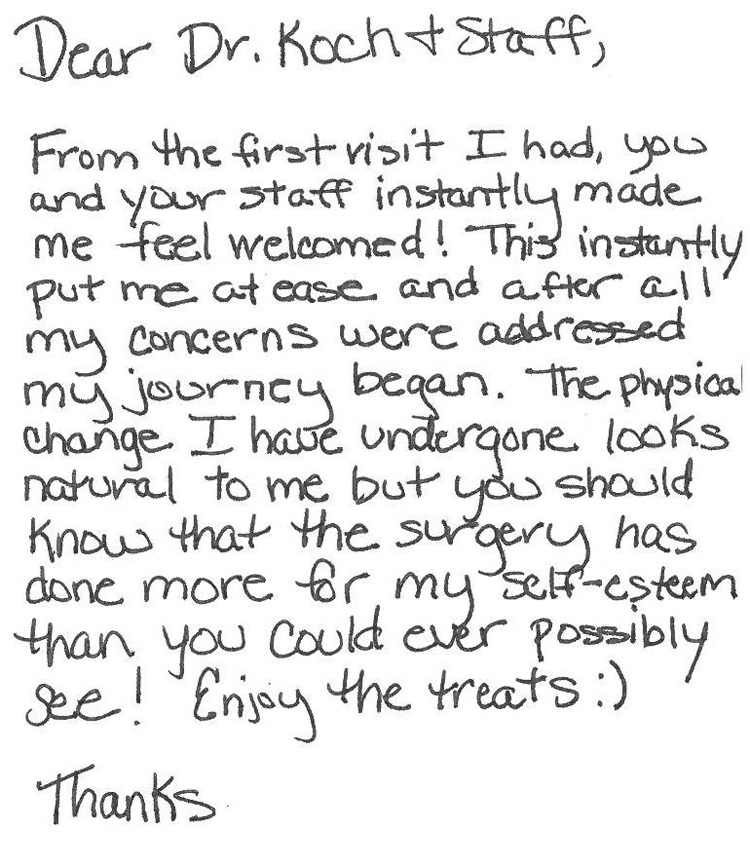 Dear Dr. Koch + Staff,
From the first visit I had, you
and your staff instantly made
me feel welcomed! This instantly
put me at ease and after all
my concerns were addressed
my journey began. The physical
change I have undergone looks
natural to me but you should
know that the surgery has
done more for my self-esteem
than you could ever possibly
see! Enjoy the treats :)
Thanks